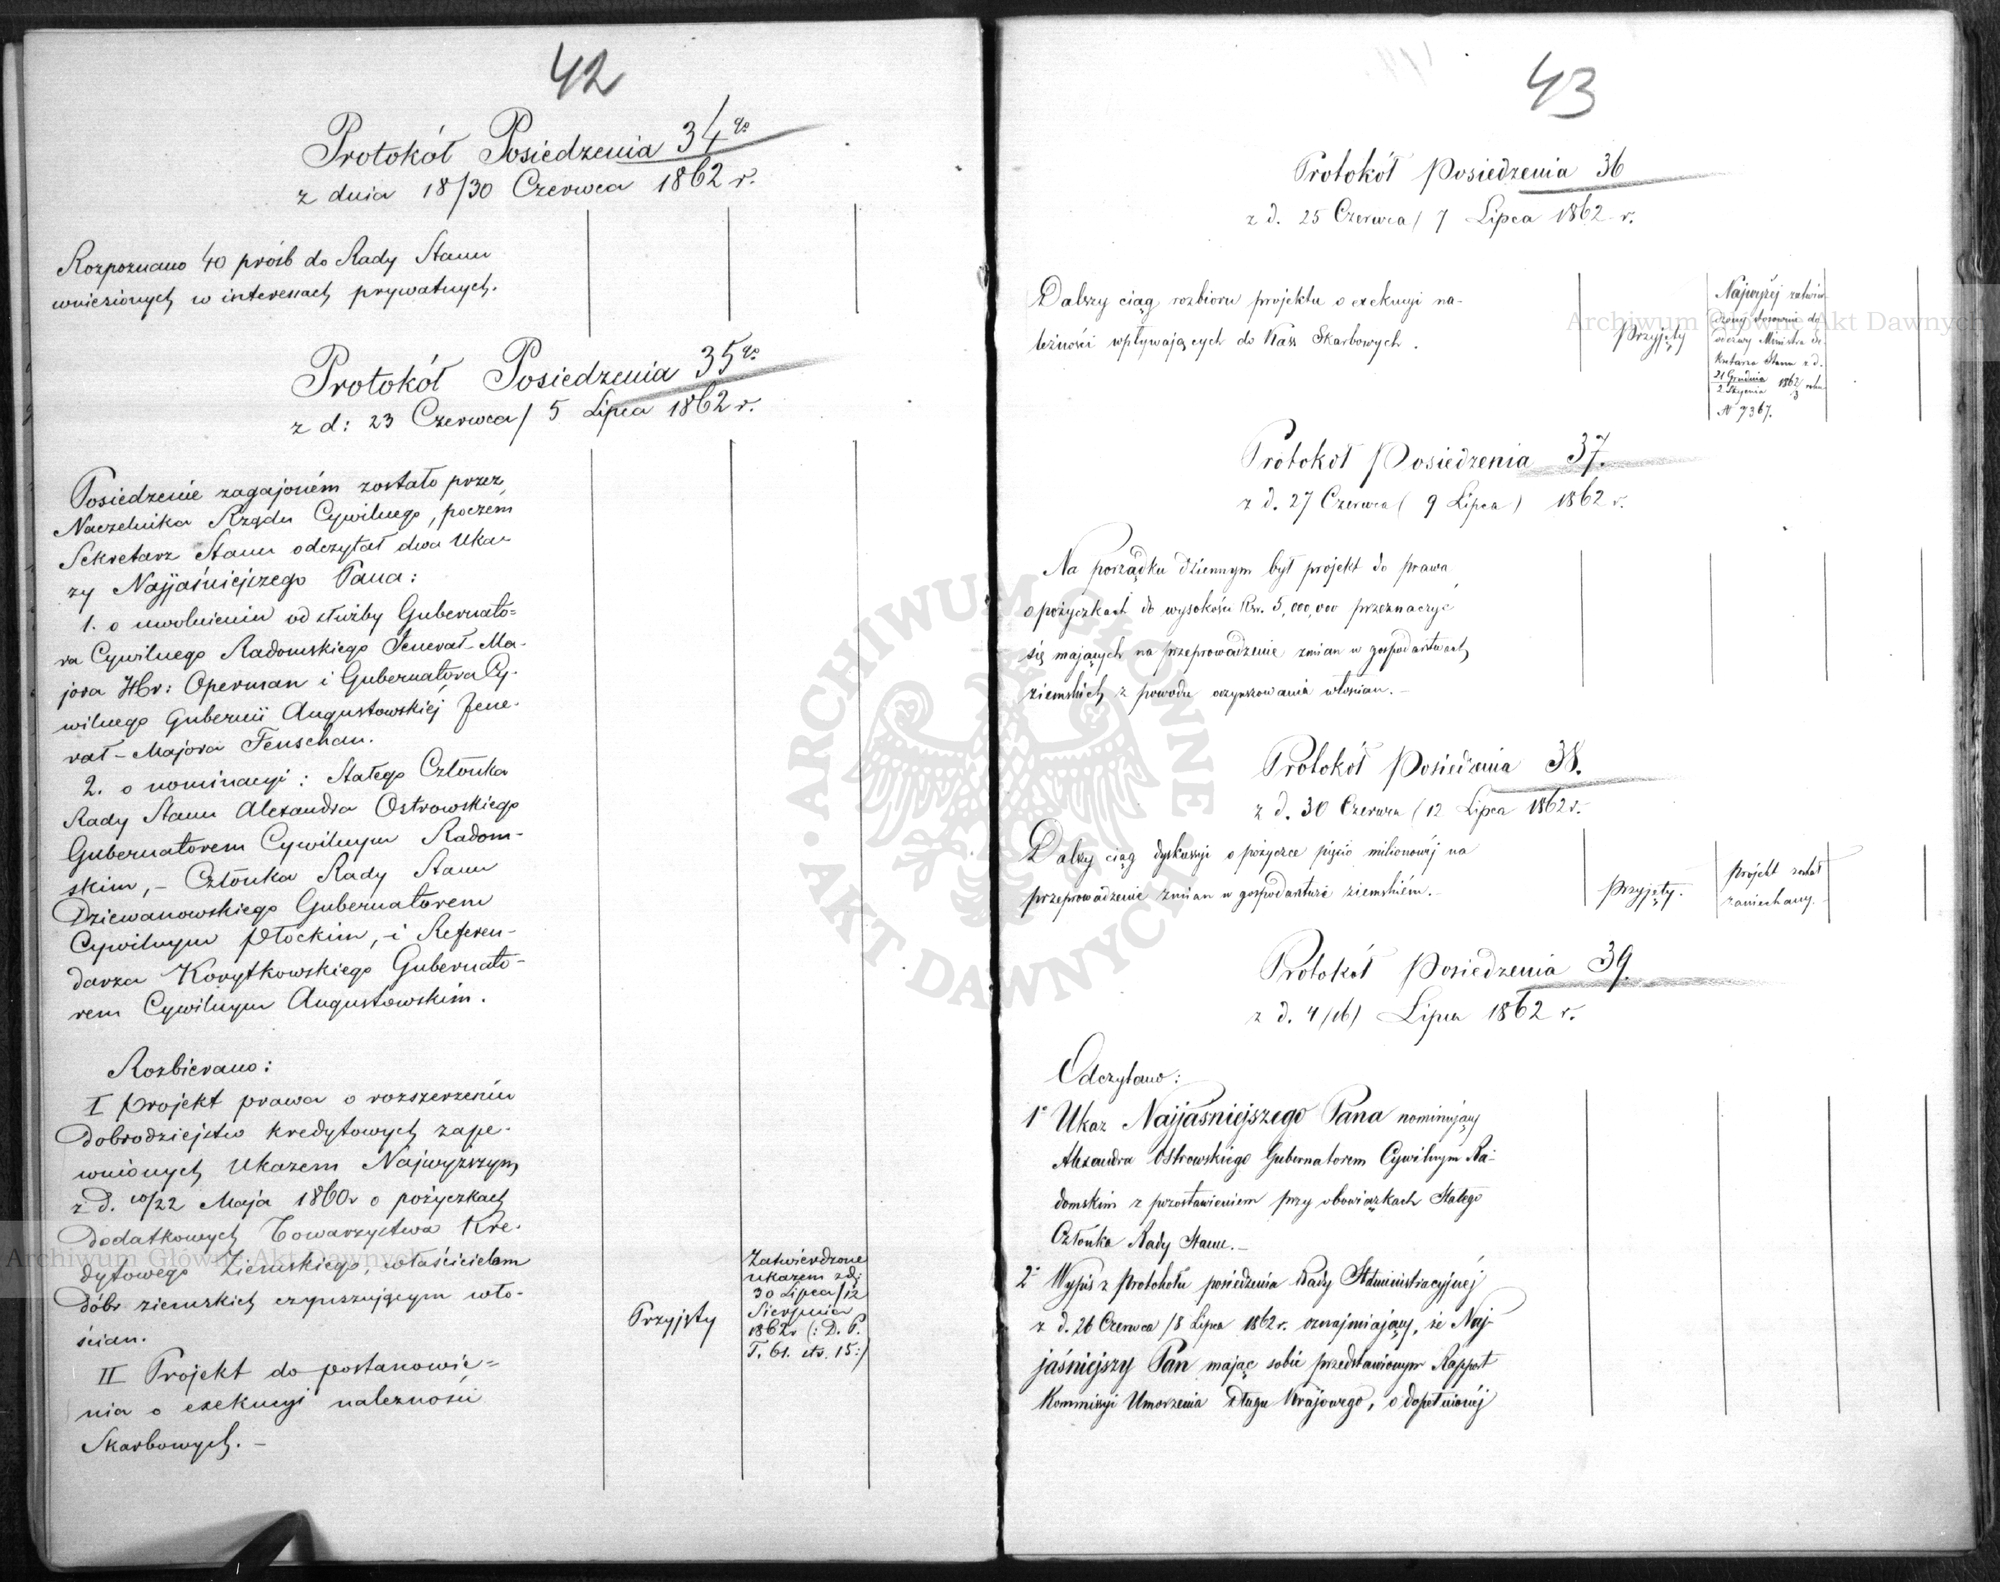 42
Protokół Posiedzenia 34go
z dnia 18/30 Czerwca 1862 r.
Rozpoznano 40 próśb do Rady Stanu
wniesionych w interessach prywatnych.
Protokół Posiedzenia 35go
z d: 23 Czerwca / 5 Lipca 1862 r.
Posiedzenie zagajoném zostało przez
Naczelnika Rządu Cywilnego, poczém
Sekretarz Stanu odczytał dwa Uka-
zy Najjaśniejszego Pana:
1. o uwolnieniu od służby Gubernato=
ra Cywilnego Radomskiego Jenerał-Ma-
jora Hr: Operman i Gubernatora Cy-
wilnego Gubernii Augustowskiéj Jene-
rał-Majora Fenschau.
2. o nominacyi: Stałego Członka
Rady Stanu Alexandra Ostrowskiego
Gubernatorem Cywilnym Radom-
skim, - Członka Rady Stanu
Dziewanowskiego Gubernatorem
Cywilnym Płockim, - i Referen-
darza Korytkowskiego Gubernato-
rem Cywilnym Augustowskim.
Rozbierano:
I Projekt prawa o rozszerzeniu
dobrodziejstw kredytowych zape-
wnionych Ukazem Najwyższym
z d. 10/22 Maja 1860r o pożyczkach
dodatkowych Towarzystwa Kre-
dytowego Ziemskiego, właścicielom
dóbr ziemskich czynszującym wło-
ścian.
Przyjęty
Zatwierdzone
ukazem z d:
30 Lipca/12
Sierpnia
1862r (: D. P.
T. 61. str. 15:)
II Projekt do postanowie=
nia o exekucyi należności
Skarbowych. -
43
Protokół Posiedzenia 36
z d. 25 Czerwca / 7 Lipca 1862 r.
Dalszy ciąg rozbioru projektu o exekucyi na-
leżności wpływających do Kass Skarbowych.
Przyjęty
Najwyżéj zatwier
dzony stosownie do
odezwy Ministra Se
kretarza Stanu z d.
21 Grudnia
2 Stycznia 1862/3 roku
N 7367.
Protokół Posiedzenia 37.
z d. 27 Czerwca (9 Lipca) 1862 r.
Na porządku dziennym był projekt do prawa
o pożyczkach do wysokości Rsr. 5,000,000 przeznaczyć
się mających na przeprowadzenie zmian w gospodarstwach
ziemskich z powodu oczynszowania włościan. -
Protokół Posiedzenia 38.
z d. 30 Czerwca (12 Lipca 1862 r.
Dalszy ciąg dyskussyi o pożyczce pięcio milionowéj na
przeprowadzenie zmian w gospodarstwie ziemskiém. -
Przyjęty.
projekt został
zaniechany. -
Protokół Posiedzenia 39.
z d. 4/16/ Lipca 1862 r.
Odczytano:
1° Ukaz Najjaśniejszego Pana nominujący
Alexandra Ostrowskiego Gubernatorem Cywilnym Ra-
domskim z pozostawieniem przy obowiązkach Stałego
Członka Rady Stanu. -
2° Wypis z protokołu posiedzenia Rady Administracyjnéj
z d. 26 Czerwca /8 Lipca 1862 r. oznajmiający, że Naj-
jaśniejszy Pan mając sobie przedstawionym Rapport
Kommissyi Umorzenia Długu Krajowego, o dopełnionéj
Archiwum Główne Akt Dawnych
Archiwum Główne Akt Dawnych
ARCHIWUM GŁÓWNE AKT DAWNYCH